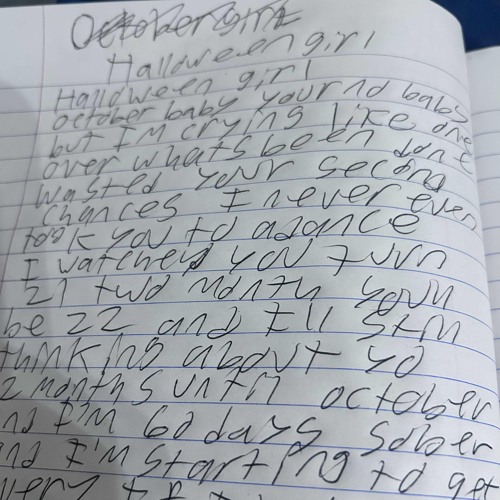 October Girl
Halloween girl
Halloween girl
october baby your no baby
but I'm crying like one
over whats been done
wasted your second
chances I never even
took you to adance
I watched you turn
21 two month your
be 22 and I'll still
thinking about yo
2 months until october
nd I'm 60 days sober
and I'm starting to get
very